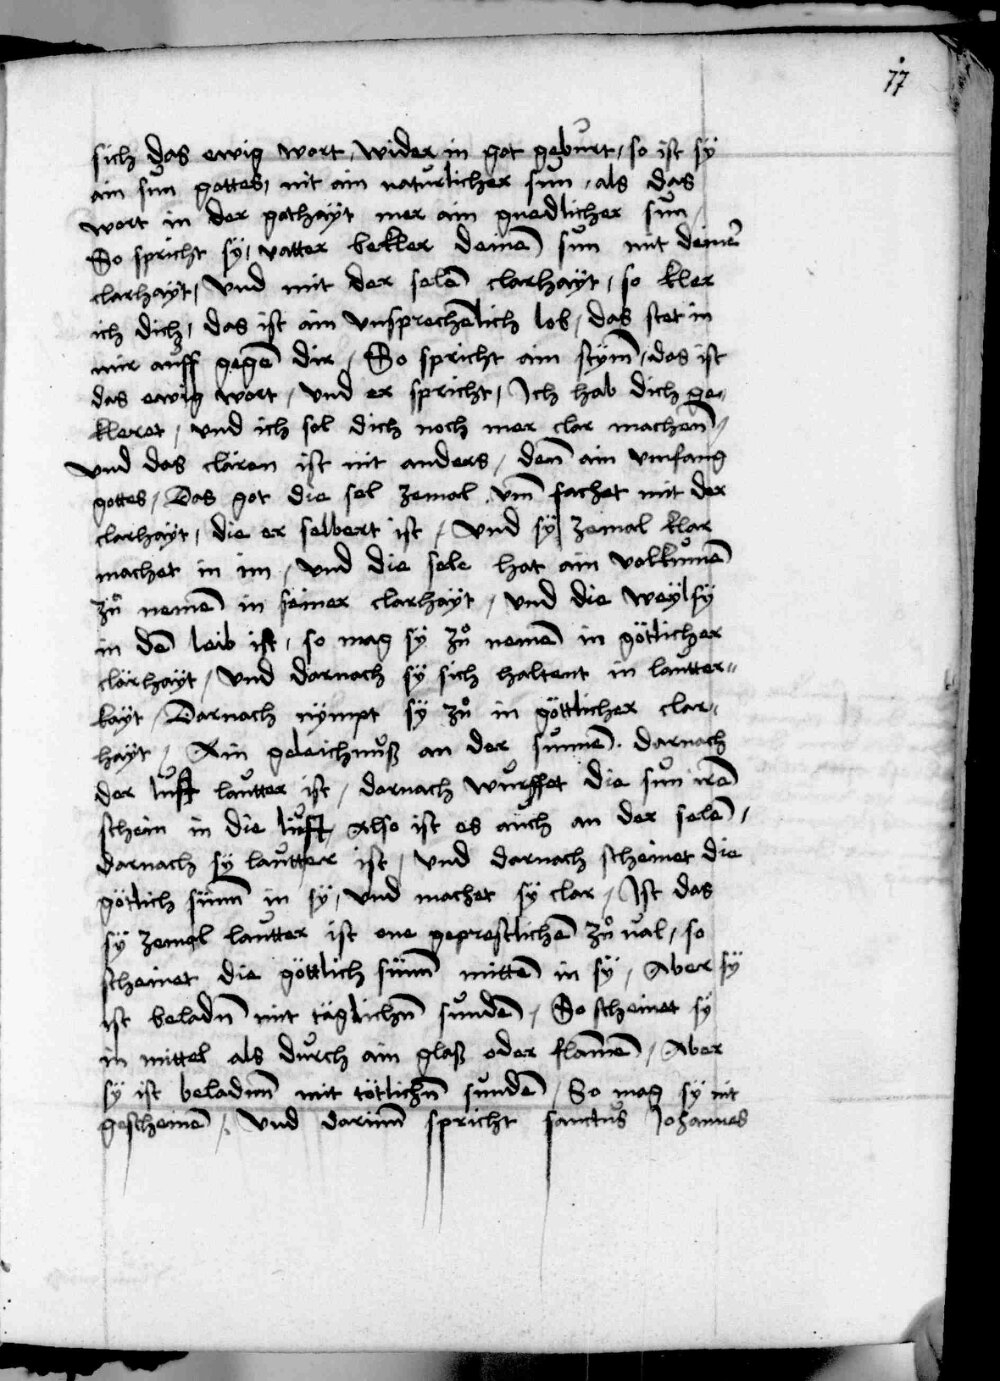 77
sich das ewig wort, wider in got geburt, so ist sÿ
ain sun gottes, nit ain naturlicher sun, als das
wort in der gothaÿt mer ain gnedlicher sun,
So spricht sÿ, vatter bekler deinē sun mit deinē
clarhaÿt, Vnd mit der selē clarhaÿt, so kler
ich dich, das ist ain Vnsprechēlich lob, das stet in
mir auff gegē dir, So spricht ain stÿm̄, das ist
das ewig wort, Vnd er spricht, Ich hab dich ge,,
kleret, vnd ich sol dich noch mer clar machen̄,
Vnd das clären ist nit anders, den̄ ain vmfang
gottes, Das got die sel zemal vm̄ fachet mit der
clarhaÿt, die er selbert ist, Vnd sÿ zemal klar
machet in im, Vnd die sele hat ain volkumē
zů nemē in seiner clarhaÿt, Vnd die weÿl sÿ
in dē leib ist, so mag sÿ zů nemē in götlicher
clärhaÿt, Vnd darnach sÿ sich haltent in lautter,,
kaÿt, Darnach nÿmpt sÿ zů in göttlicher clar,,
haÿt, Ain geleichnuß an der sunnē. darnach
der lufft lautter ist, darnach wurffet die sun irē
schein in die luft, Also ist es auch an der selē,
darnach sÿ lautter ist, Vnd darnach scheinet die
götlich sunn̄ in sÿ, Vnd machet sÿ clar, Ist das
sÿ zemal lautter ist one geprestlichē zů val, so
scheinet die göttlich sunn̄ mittē in sÿ, Aber sÿ
ist beladn̄ mit täglichn̄ sundē, So scheinet sÿ
in mittel als durch ain glaß oder flam̄ē, Aber
sÿ ist beladnn̄ mit tötlichn̄ sundē, So mag sÿ nit
gescheinē, Vnd darum̄ spricht sanctus Johannes